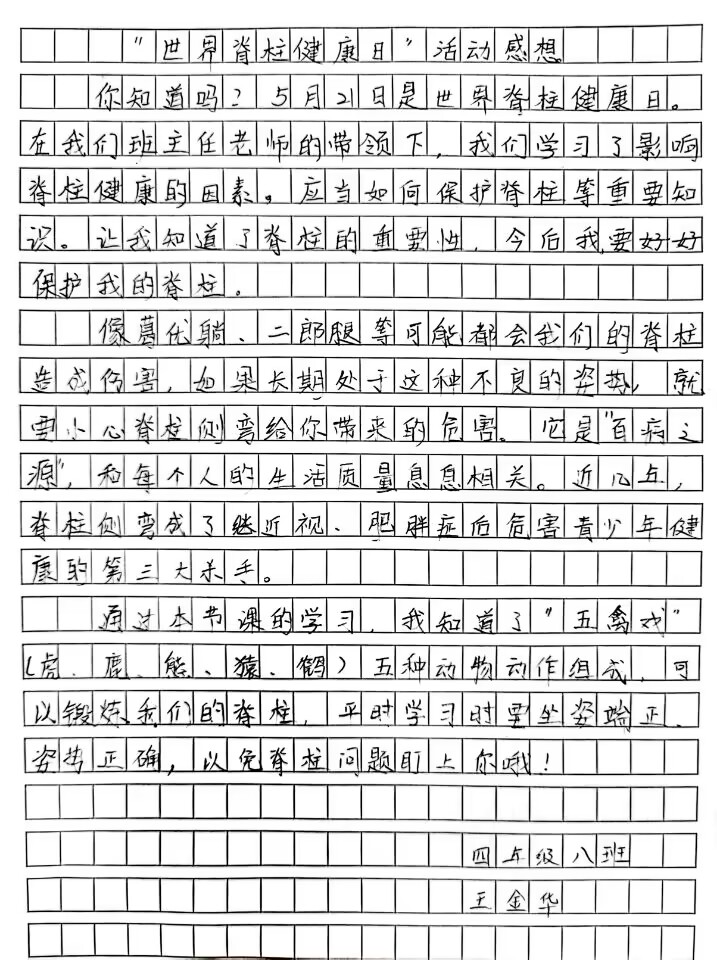 “世界脊柱健康日”活动感想
你知道吗？5月21日是世界脊柱健康日。
在我们班主任老师的带领下，我们学习了影响
脊柱健康的因素。应当如何保护脊柱等重要知
识。让我知道了脊柱的重要性，今后我要好好
保护我的脊柱。
像葛优躺、二郎腿等可能都会我们的脊柱
造成伤害，如果长期处于这种不良的姿势，就
要小心脊柱侧弯给你带来的危害。它是“百病之
源”，和每个人的生活质量息息相关。近几年，
脊柱侧弯成了继近视、肥胖症后危害青少年健
康的第三大杀手。
通过本节课的学习，我知道了“五禽戏”
（虎、鹿、熊、猿、鹤）五种动物动作组成，可
以锻炼我们的脊柱，平时学习时要坐姿端正、
姿势正确，以免脊柱问题盯上你哦！
四年级八班
王金华